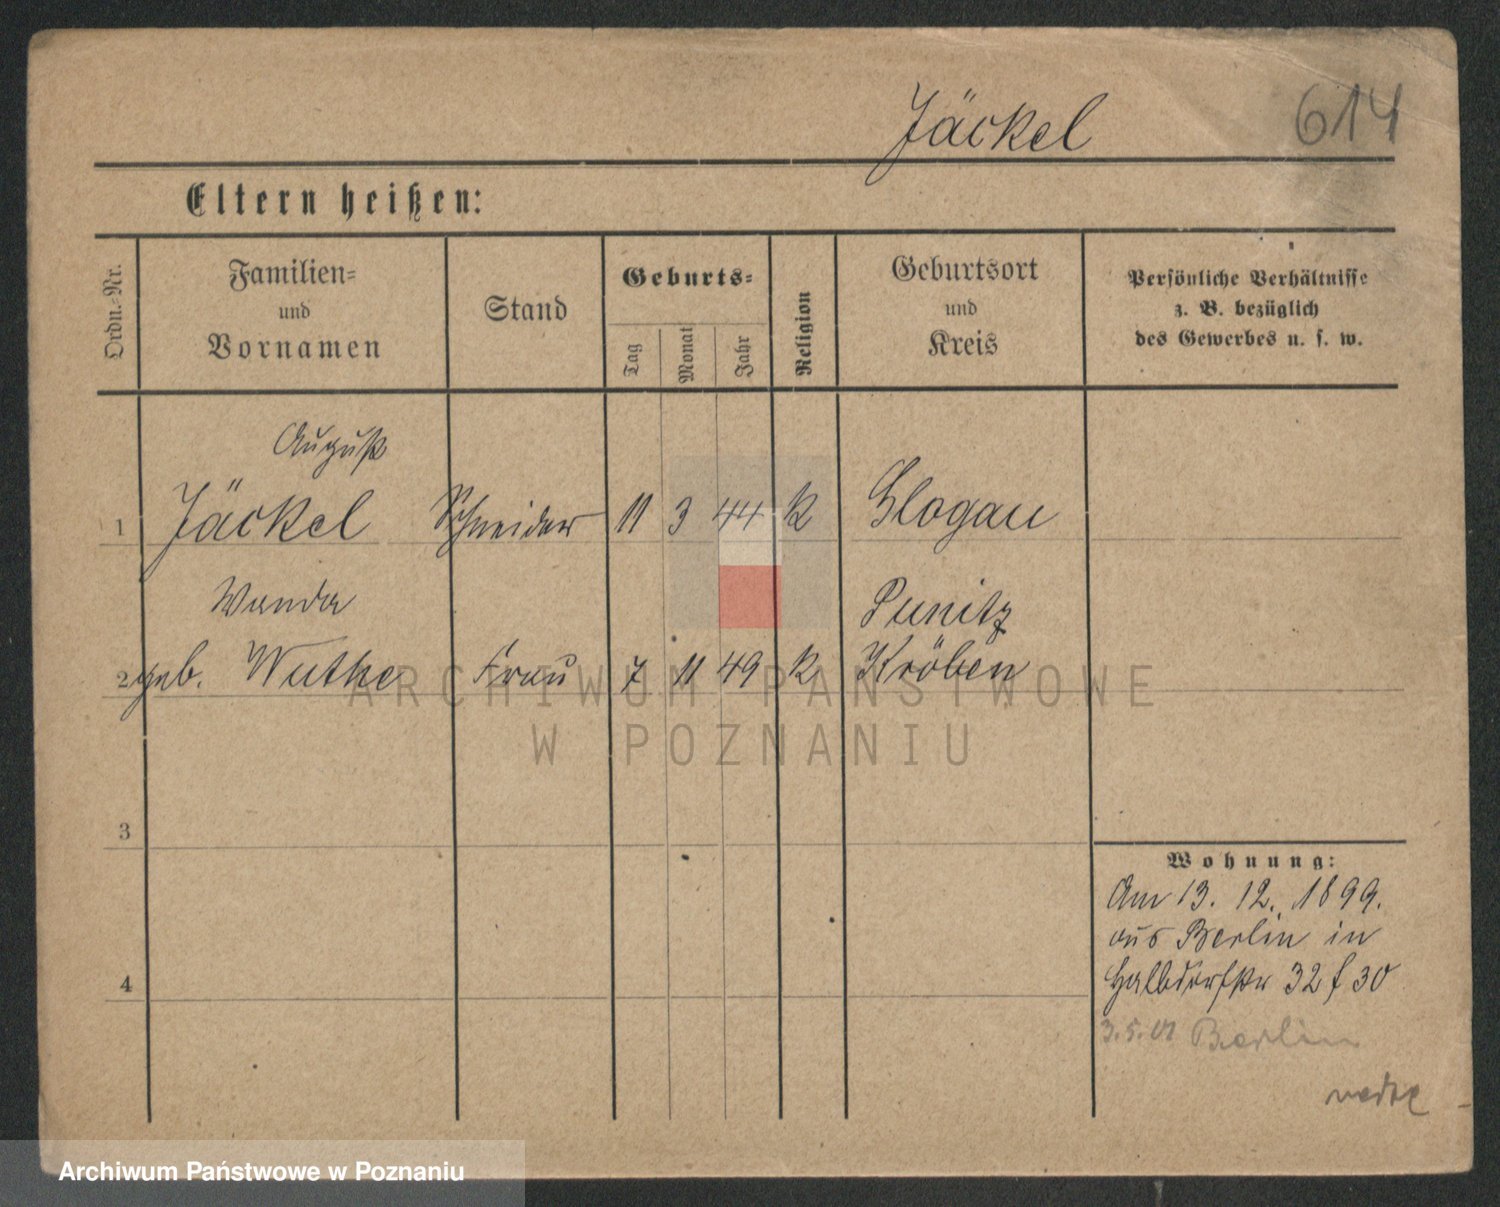 Jäckel 614
Eltern heißen:
Ordn.-Nr.
Familien-
und
Vornamen
Stand
Geburts-
Tag
Monat
Jahr
Religion
Geburtsort
und
Kreis
Persönliche Verhältnisse
z. B. bezüglich
des Gewerbes u. s. w.
August
1 Jäckel Schneider 11 3 44 K Glogau
Wanda Punitz
2 geb. Wuthe Frau 7 11 49 K Kröben
ARCHIWUM PAŃSTWOWE
W POZNANIU
3
4
Wohnung:
Am 13. 12. 1899.
aus Berlin in
Halbdorfstr 32 f 30
3.5.01 Berlin
Archiwum Państwowe w Poznaniu